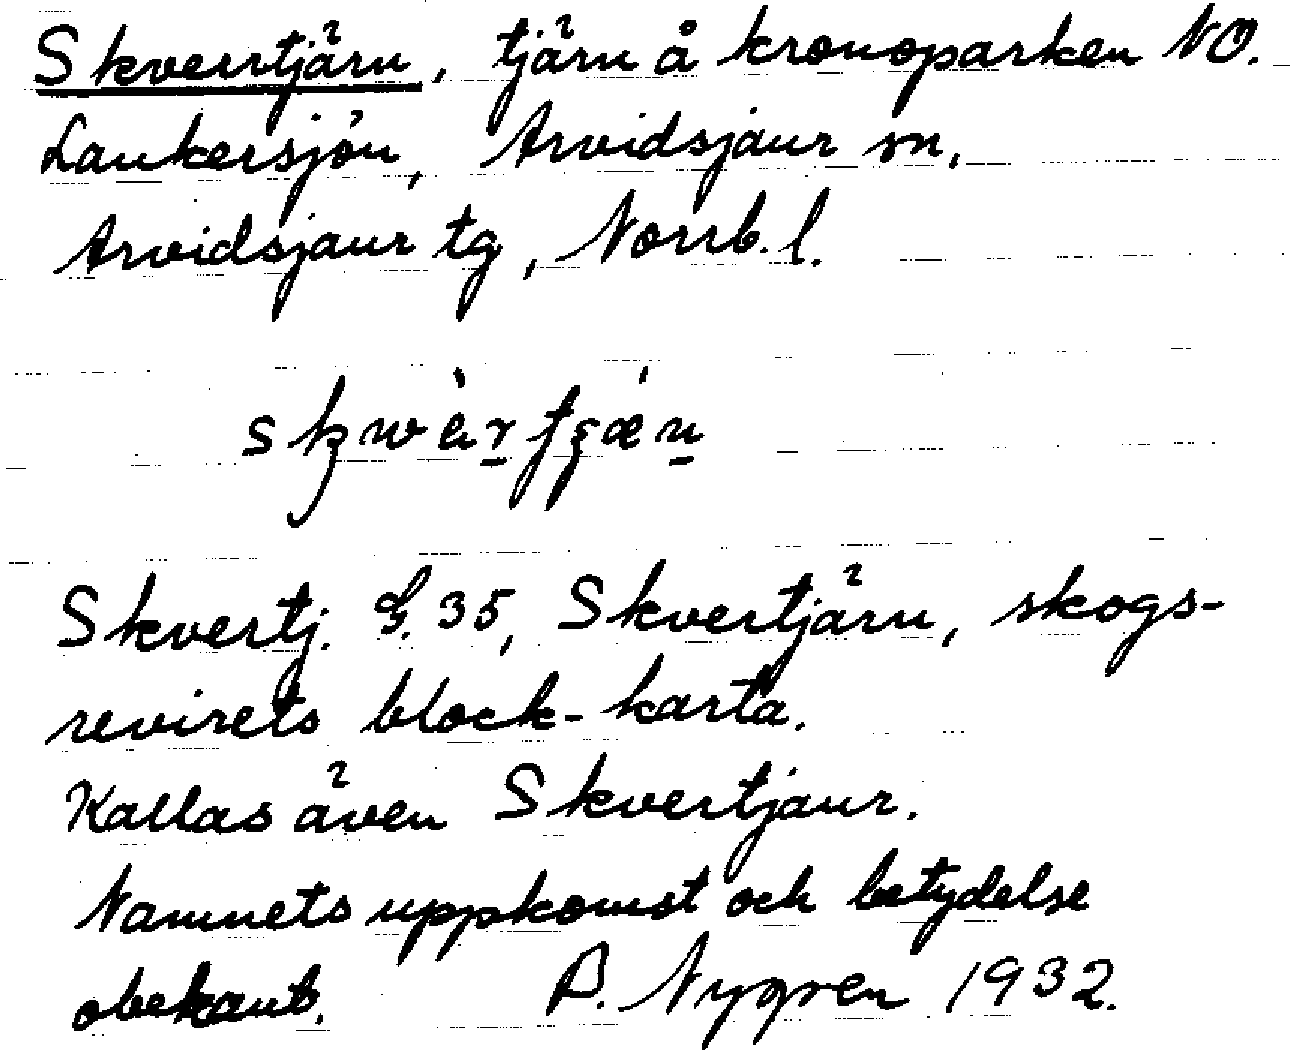 Skvertjärn, tjärn å kronoparken NO.
Laukersjön, Arvidsjaur sn,
Arvidsjaur tg, Norrb. l.
Skvertj. G. 35, Skvertjärn, skogs-
revirets block-karta.
Kallas även Skvertjaur.
Namnets uppkomst och betydelse
obekant. A. Nygren 1932.